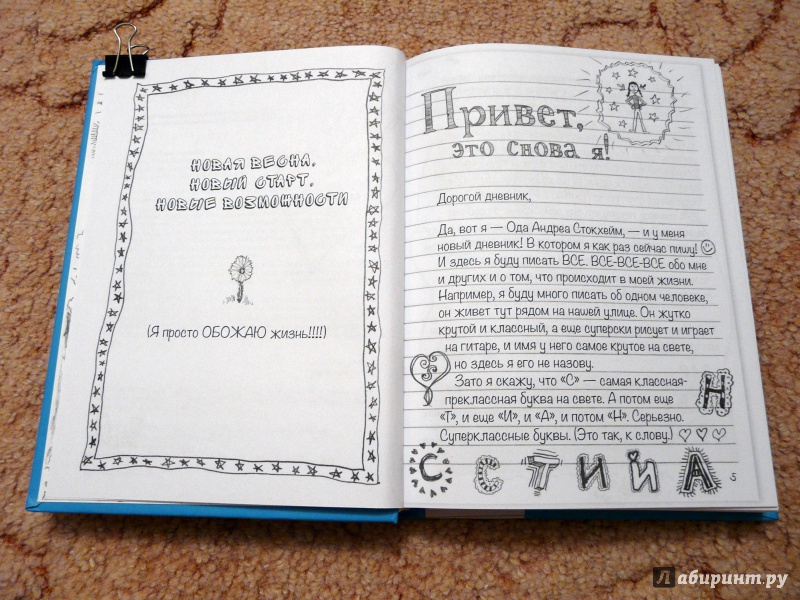 НОВАЯ ВЕСНА,
НОВЫЙ СТАРТ,
НОВЫЕ ВОЗМОЖНОСТИ
(Я просто ОБОЖАЮ жизнь!!!!)
Привет,
это снова я!
Дорогой дневник,
Да, вот я — Ода Андреа Стокхейм, — и у меня
новый дневник! В котором я как раз сейчас пишу!
И здесь я буду писать ВСЕ. ВСЕ-ВСЕ-ВСЕ обо мне
и других и о том, что происходит в моей жизни.
Например, я буду много писать об одном человеке,
он живет тут рядом на нашей улице. Он жутко
крутой и классный, а еще суперски рисует и играет
на гитаре, и имя у него самое крутое на свете,
но здесь я его не назову.
Зато я скажу, что «С» — самая классная-
преклассная буква на свете. А потом еще
«Т», и еще «И», и «А», и потом «Н». Серьезно.
Суперклассные буквы. (Это так, к слову.)
Н
С С Т И Й А
5
Лабиринт.ру